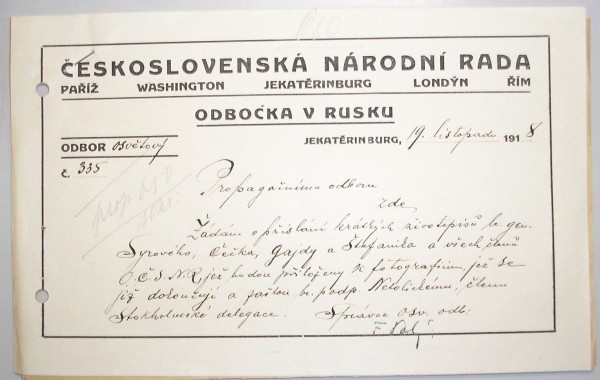 ČESKOSLOVENSKÁ NÁRODNÍ RADA
PAŘÍŽ WASHINGTON JEKATĚRINBURG LONDÝN ŘÍM
ODBOČKA V RUSKU
JEKATĚRINBURG, 19. listopadu 1918
ODBOR osvětový
č. 335
Propagačnímu odboru
zde
Žádám o přislání krátkých životopisů br. gen.
Syrového, Čečka, Gajdy a Štefanika a všech členů
O.Č.S.N.R, jež budou přiloženy k fotografiím, jež se
již dokončují a zašlou br. podp. Netolickému, členu
Stokholmské delegace. Správce osv. odb: